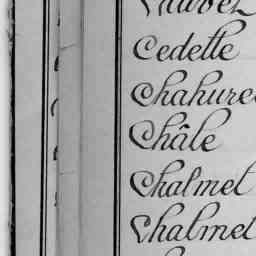 Cedelle
Chahure
Châle
Chalmet
Chalmet